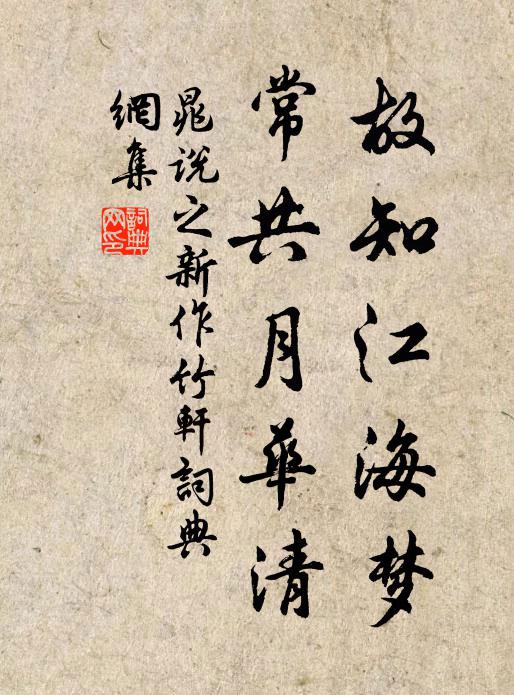 故知江海梦
常共月華清
晁说之新作竹軒詞典
網集
詞典网印